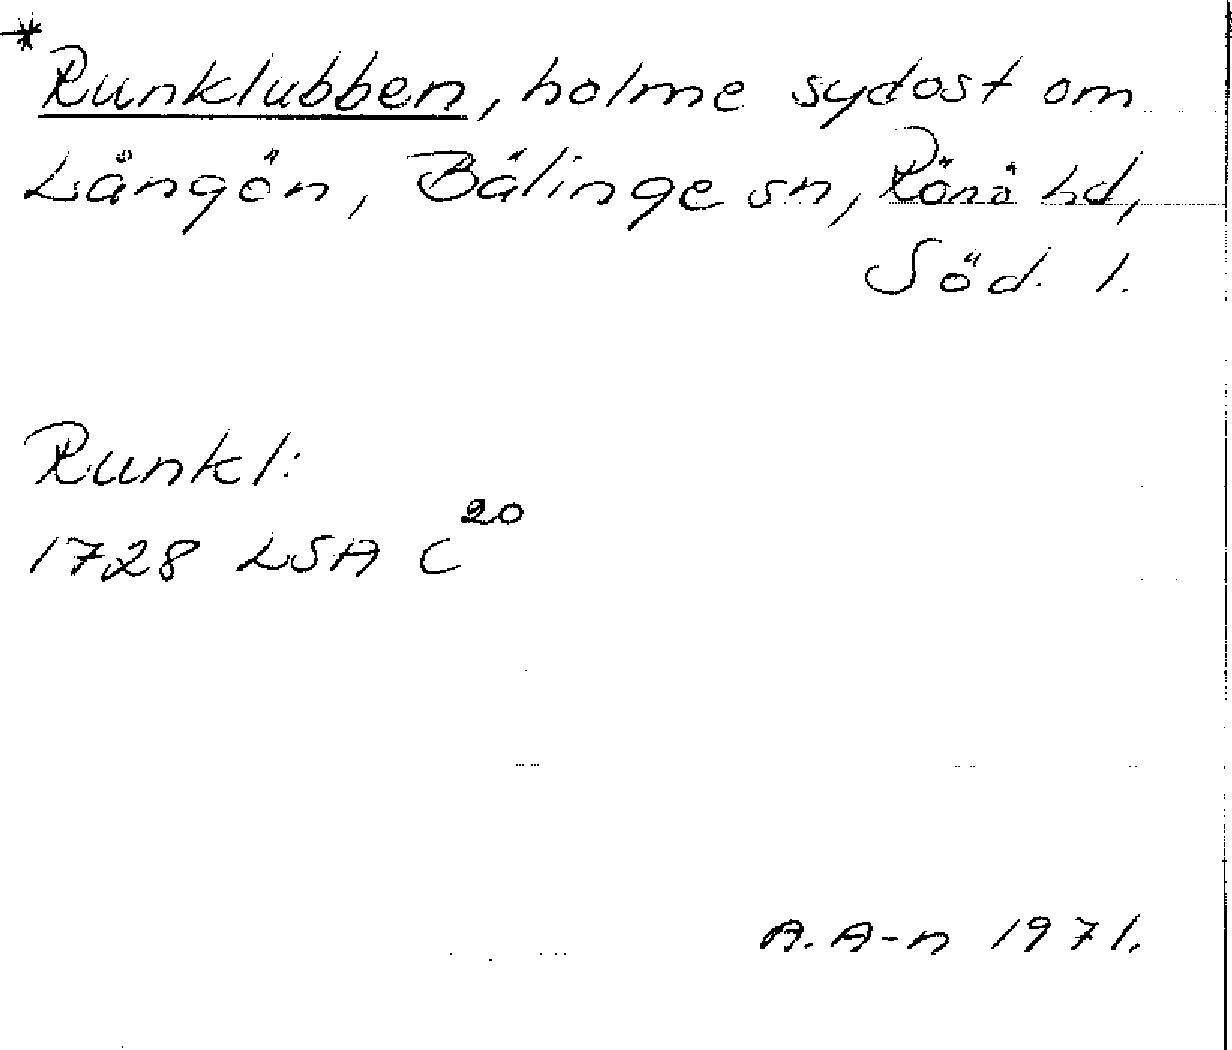 * Runklubben, holme sydost om
Långön, Bälinge sn, Rönö hd,
Söd. l.
Runkl:
1728 LSA C²⁰
A. A-n 1971.